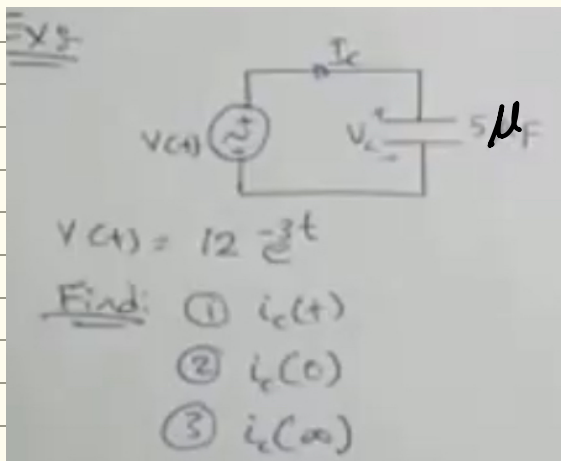 Ex:
Ic
V(t)
Vc
5 μF
V(t) = 12 e^-3t
Find: ① ic(t)
② ic(0)
③ ic(∞)